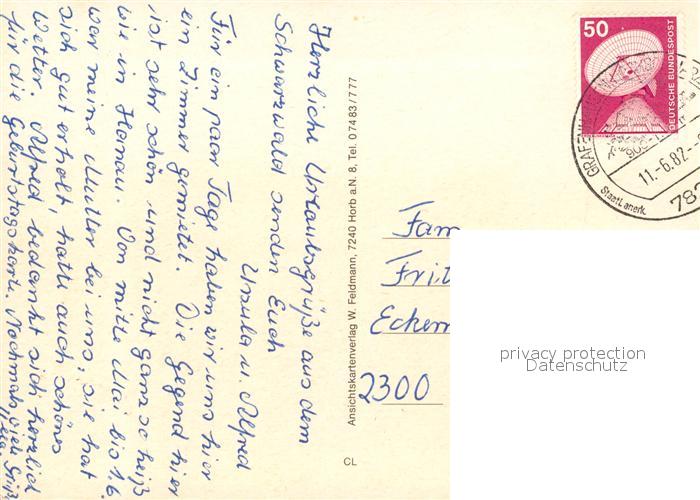 Herzliche Urlaubsgrüße aus dem
Schwarzwald senden Euch
Ursula u. Alfred
Für ein paar Tage haben wir uns hier
ein Zimmer gemietet. Die Gegend hier
ist sehr schön und nicht ganz so heiß
wie in Hanau. Von mitte Mai bis 1.6.
war meine Mutter bei uns, sie hat
sich gut erholt, hatte auch schönes
Wetter. Alfred bedankt sich herzlich
für die Geburtstagskarte. Nochmals viele Grüße
Ansichtskartenverlag W. Feldmann, 7240 Horb a.N. 8, Tel. 07483/777
CL
50
DEUTSCHE BUNDESPOST
GRAFENH
900-1
11.-6.82.-
Staatl. anerk.
78
Fam
Frit
Eckern
2300
privacy protection
Datenschutz